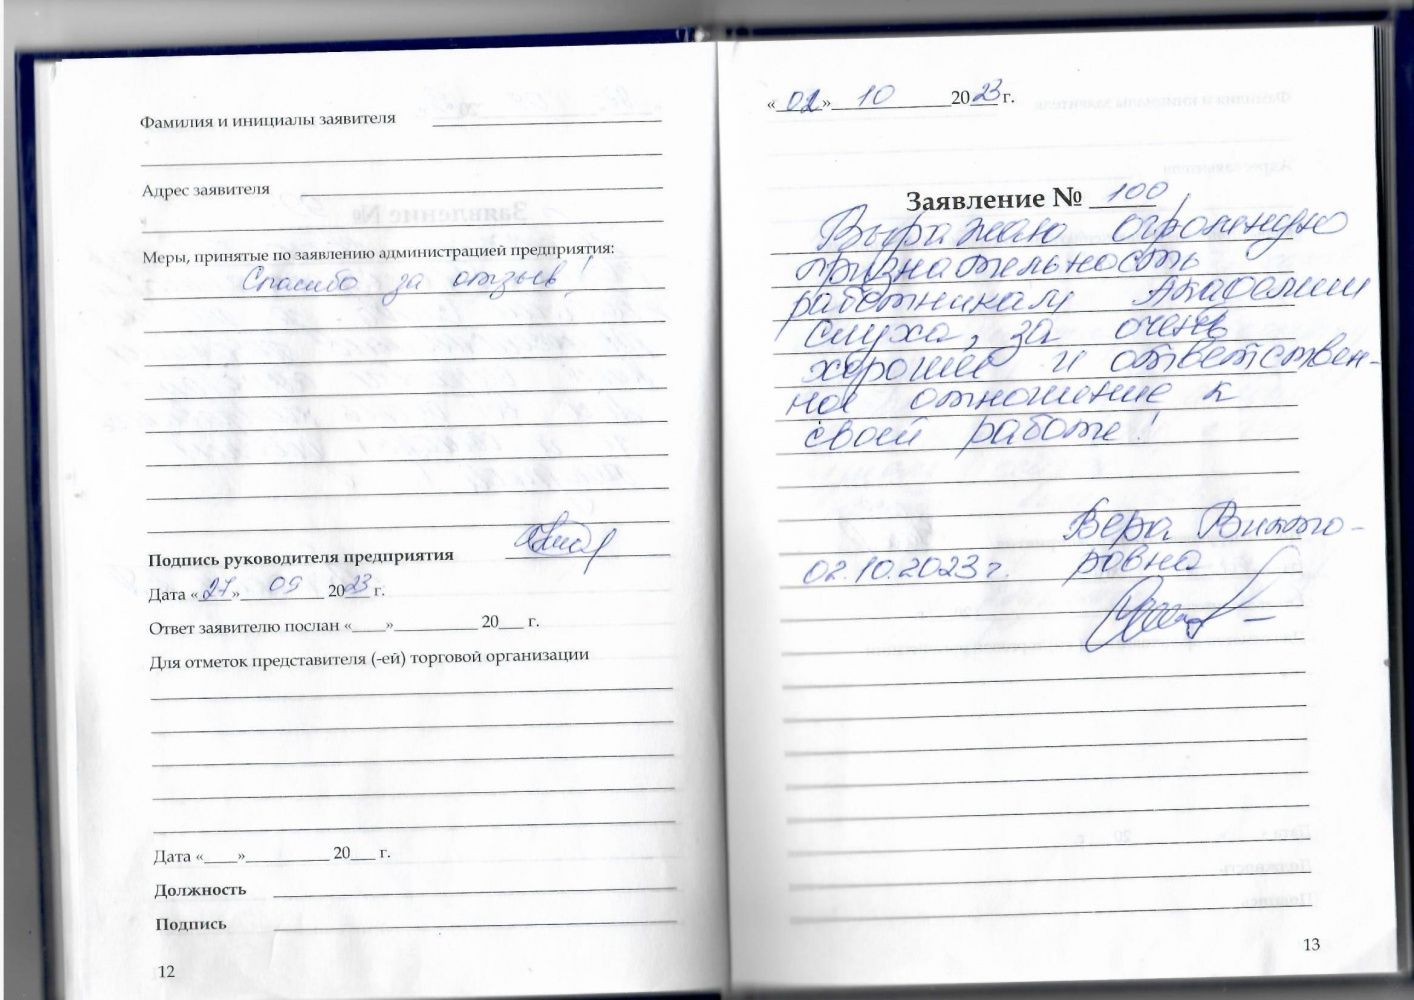 Фамилия и инициалы заявителя
Адрес заявителя
Меры, принятые по заявлению администрацией предприятия:
Спасибо за отзыв!
Подпись руководителя предприятия
Дата «27» 09 2023 г.
Ответ заявителю послан «____»__________ 20___ г.
Для отметок представителя (-ей) торговой организации
Дата «____»__________ 20___ г.
Должность
Подпись
12
«02» 10 2023 г.
Заявление № 100
Выражаю огромную
признательность
работникам Академии
Слуха, за очень
хорошее и ответствен-
ное отношение к
своей работе!
Вера Викто-
02.10.2023 г. ровна
13